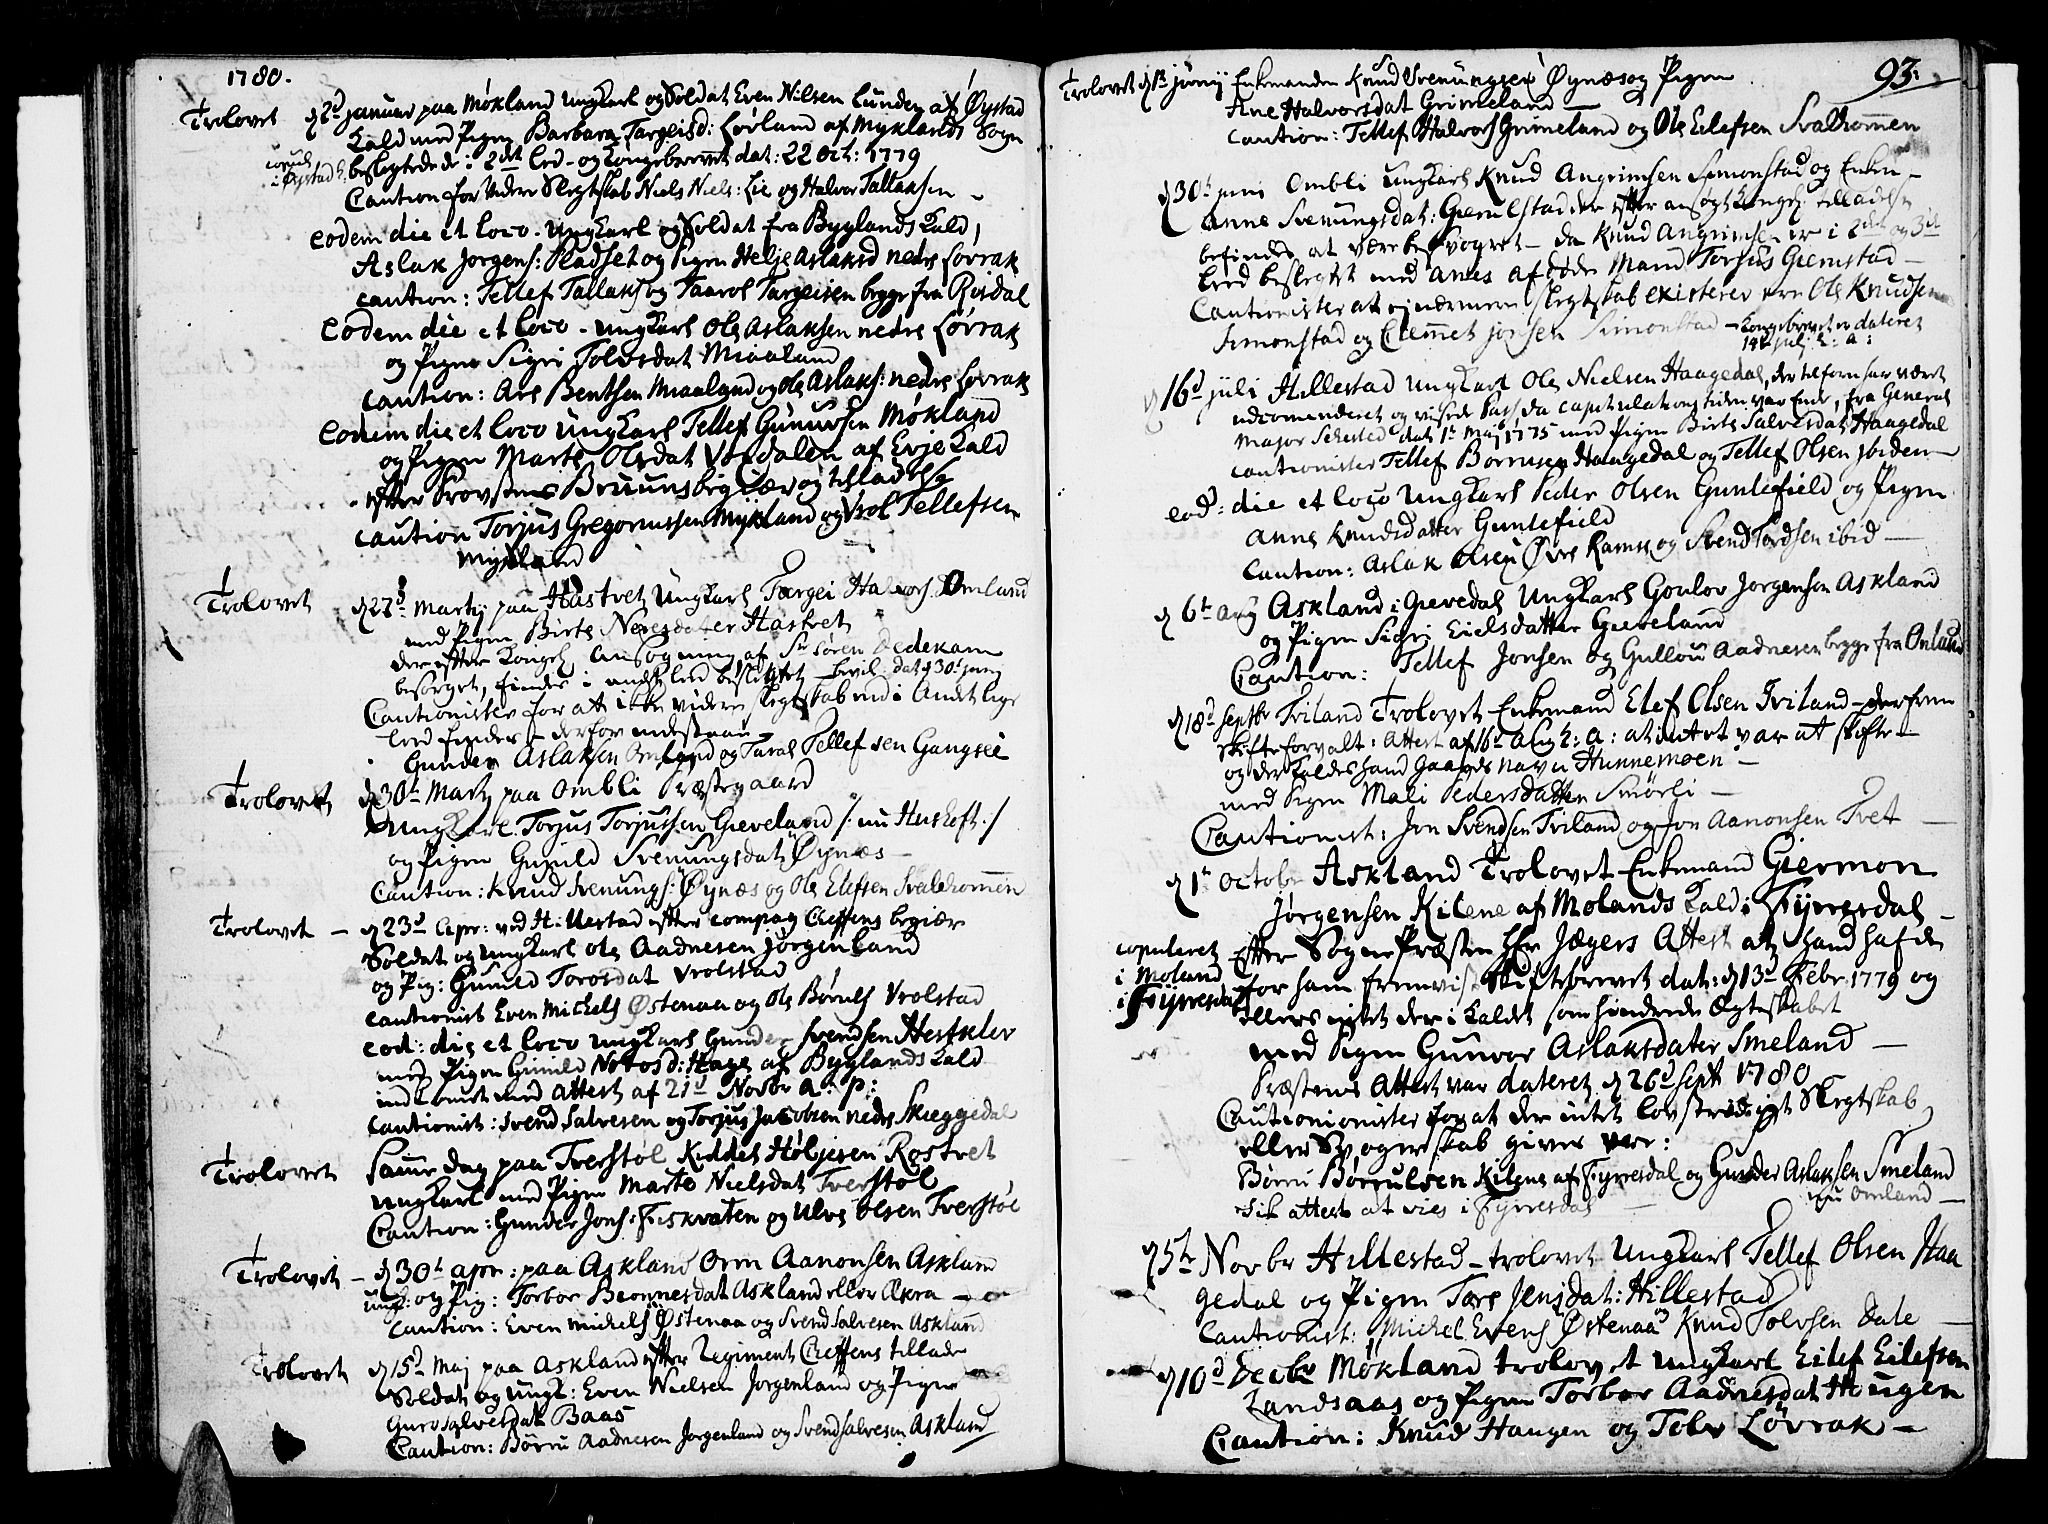 1780.
Trolovet d 2d januar paa Møkland Ungkarl og Soldat Even Nilsen Lunden af Øystad
Kald med Pigen Barbara Targeisd: Lørland af Myklands Sogn
copul: i Øystad K. beslegtede i 2det Led - og Kongebrevet dat: 22 Oct: 1779
Caution for vider Slegtskab Niels Niels: Lie og Halvor Tallaksen -
eodem die et loco - Ungkarl og Soldat fra Byglands Kald,
Aslak Jorgens: Pladset og Pigen Helje Aslaksd nedre Løvrak
caution: Tellef Tallaks og Taarol Targeisen begge fra Risdal
Eodem die et loco - Ungkarl Ole Aslaksen nedre Løvrak
og Pigen Sigri Tolvsdat Miaaland
caution: Are Bentsen Miaaland og Ole Aslaks: nedre Løvrak
Eodem die et loco Ungkarl Tellef Gunursen Møkland
og Pigen Marte Olsdat Vordalen af Evje Kald
efter Provstens Bruuns begiær og tilladelse
caution Torjus Gregoriussen Mykland og Vrol Tellefsen
Mykland
Trolovet d 27d Martij paa Hastvet Ungkarl Targei Halvors: Omland
med Pigen Birte Neresdater Hastvet
der efter Kongel ansøgning af Sr Søren Dedekam
besørget, findes i andet Led beslegtet - bevil: dat d 30t junij
Cautionister for at ikke videre slegtskab end i Andet lige
Led findes - derfor indestaar -
Gunder Aslaksen Omland og Taral Tellefsen Gangsei
Trolovet d 30t Martj paa Ombli Præstegaard
Ungkarl Torjus Torjussen Gieveland /: nu Huskeft :/
og Pigen Gunild Svenungsdat Øynæs -
Caution: Knud Svenungs: Øynæs og Ole Elefsen Svalehommen
Trolovet - d 23d Apr: ved Hillestad efter Compag Cheffens begiær
Soldat og Ungkarl Ole Aadnesen Jørgenland
og Pig: Gunild Torosdat Vrolstad
cautionist Even Michels Østenaa og Ole Børuls Vrolstad
eod: die et loco Ungkarl Gunder Svendsen Hestklev
med Pigen Gunild Notosd: Hage af Byglands Kald
indkomet med Attest af 21d Novbr a: p:
cautionist: Svend Salvesen og Torjus Jacobsen nedre Skieggedal
Trolovet Samme dag paa Tverstøl Kiddel Høljesen Rostvet
Ungkarl med Pigen Marte Nielsdat Tverstøl
Caution: Gunder Jons: Fiskvaten og Ulve Olsen Tverstøl
Trolovet - d 30t apr: paa Askland Orm Aanonsen Askland
Ungk: og Pig: Torbor Biønnesdat Askland eller Økra -
Caution: Even Michels Østenaa og Svend Salvesen Askland
Trolovet d 15d Maj paa Askland efter Regiment Cheffens tillade
Soldat og Ungk: Even Nielsen Jorgenland og Pigen
Guro Salvesdat Baas
Caution: Børru Aadnesen Jorgenland og Svend Salvesen Askland
93:
Trolovet d 1t junij Enkemanden Knud Svenungsen Øynæs og Pigen
Ane Halvorsdat Grimeland -
Caution: Tellef Halvors Grimeland og Ole Eilefsen Svalhommen
d 30t juni Ombli Ungkarl Knud Angrimsen Simonstad og Enken -
Anne Svenungsdat: Gierulstad der efter ansøgt Kongel: tilladelse
befindes at være besvogret - da Knud Angrimsen er i 2det og 3dt
Led beslegtet med Anes afdøde Mand Torjus Giernstad -
Cautionister at ej nærmere slegtskab existerer ere Ole Knudsen
Simonstad og Clemmet Jonsen Simonstad - Kongebrevet er dateret
14d julj h: a:
d 16d juli Hillestad Ungkarl Ole Nielsen Haagedal, der tilforn har været
udcomenderet og viiste Pass da capitulations tiden var Ende, fra General
Major Sehested dat 1t Maj 1775 med Pigen Birte Salvesdat Haagedal
cautionister Tellef Borrusen Haagedal og Tellef Olsen ibiden
eod: die et loco Ungkarl Peder Olsen Guntefield og Pigen
Anne Knudsdatter Guntefield
Caution: Aslak Olsen Øvre Ramse og Svend Tordsen ibid -
d 6t aug Askland i Gievedal Ungkarl Gonlov Jorgenson Askland
og Pigen Sigri Eielsdatter Gieveland
Caution: Tellef Jonsen og Gullou Aadnesen begge fra Omland
d 18d Septbr Triland Trolovet Enkemand Elef Olsen Triland - der frem
skifteforvalt: Attest af 16d Aug h: a: at intet var at skifte -
og der Kaldes hans Gaards navn Hunnemoen -
med Pigen Mali Pedersdatter Smørli -
Cautionist: Jon Svendsen Triland og Jon Aanonsen Tvet -
d 1t Octobr Askland Trolovet Enkemand Giermon
Jørgensen Kilene af Molands Kald i Fyrresdal -
copuleret i Moland i Fyrresdal
Efter Sogne Præsten Hr Jægers Attest at hand hafde
for ham fremvist Skiftebrevet dat: d 13d Febr. 1779 og
ellers intet der i Kaldet som hindrede Ægteskabet
med Pigen Gunvor Aslaksdater Smeland -
Præstens Attest var dateret d 26d Sept 1780
Cautionionister for at der intet lovstridigt Slegtskab
eller Svogerskab gives ere:
Børru Børrulsen Kilene af Fyrresdal og Gunder Aslaksen Smeland
nu Omland -
fik attest at vies i Fyrresdal -
d 5t Novbr Hillestad - trolovet Ungkarl Tellef Olsen Haa
gedal og Pigen Tore Jensdat: Hillestad
Cautionist: Michel Evens Østenaa Knud Tolvsen Dale -
d 10d Decbr Møkland trolovet Ungkarl Eilef Eilefsen
Landsaas og Pigen Torbor Aadnesdat Haugen
Caution: Knud Haugen og Tolv Løvrak -